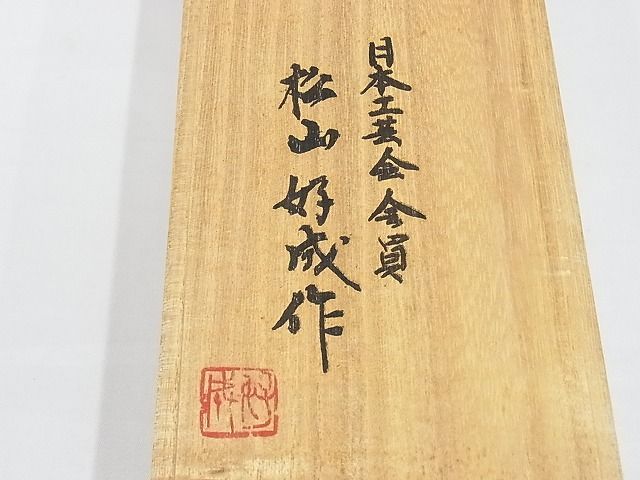 日本工芸会会員
松山好成作
好成